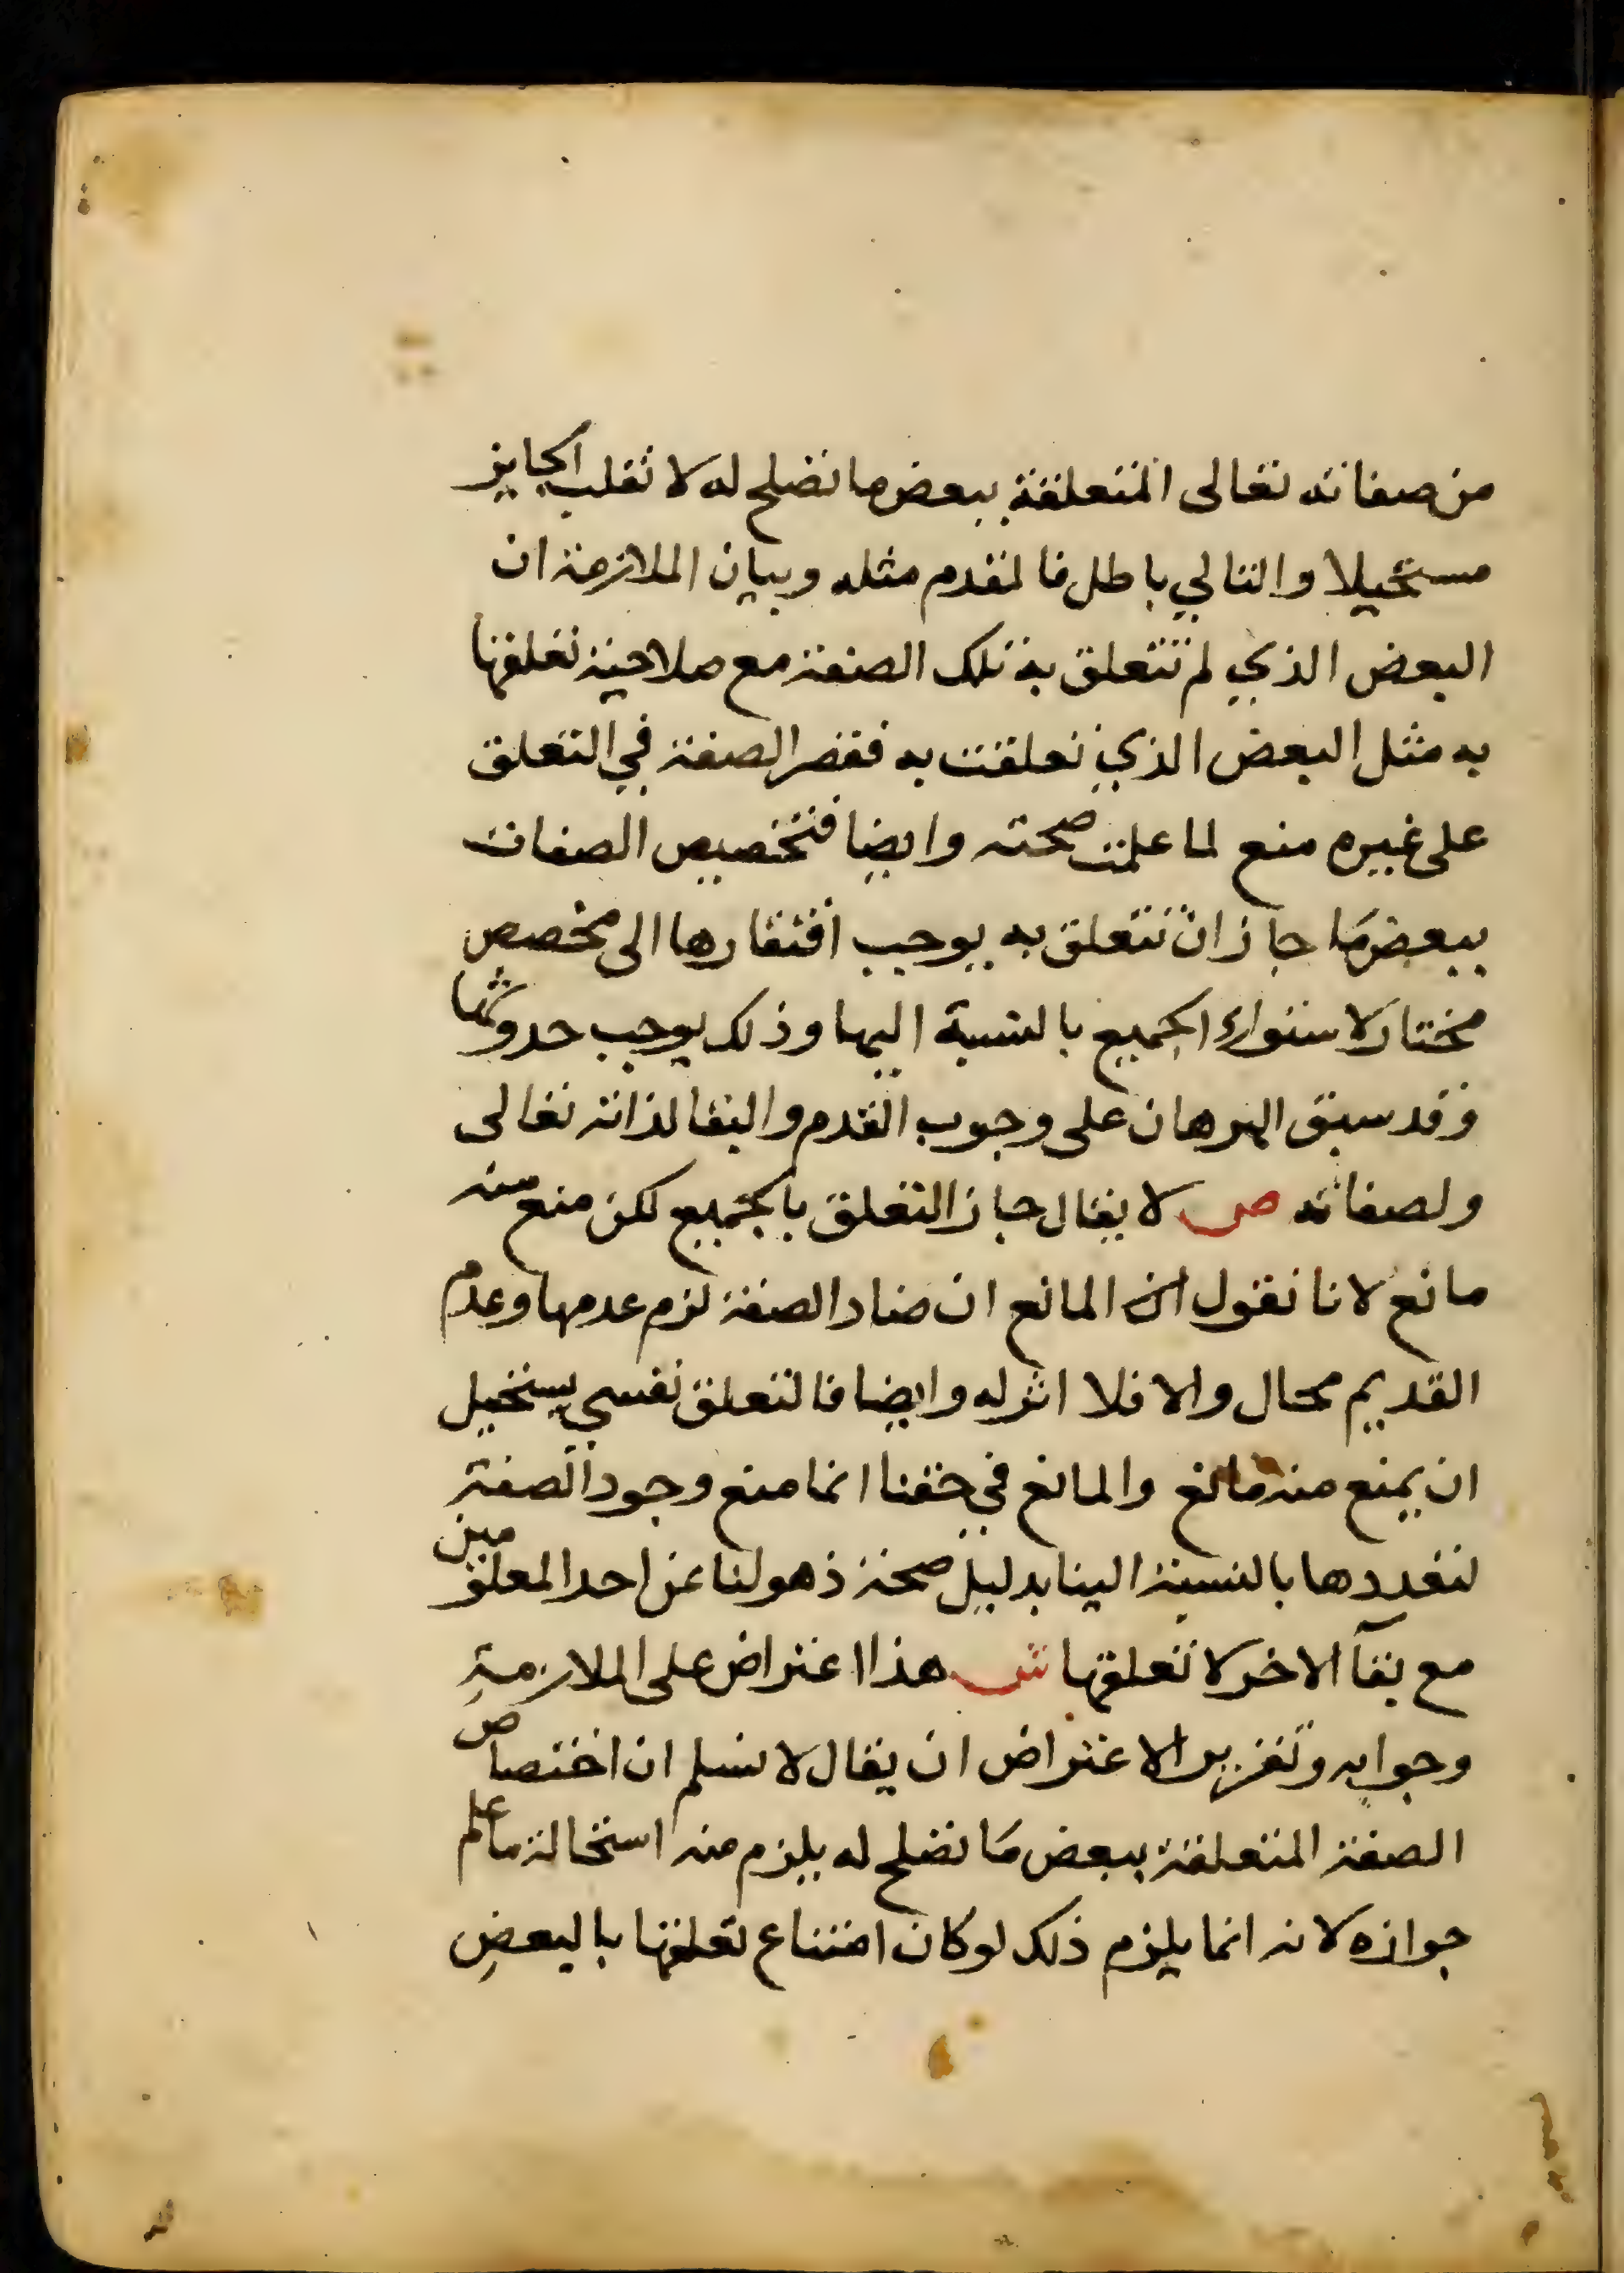 من صفاته تعالى المتعلقة ببعض ما تصلح له لا نقلب الجايز
مستحيلا والتالي باطل فالمقدم مثله وبيان الملازمة ان
البعض الذي لم تتعلق به تلك الصفة مع صلاحية تعلقها
به مثل البعض الذي تعلقت به فقصر الصفة في التعلق
على غيره منع لما علمت صحته وايضا فتخصيص الصفات
ببعض ما جاز ان تتعلق به يوجب افتقارها الى مخصص
مختار لاستواء الجميع بالنسبة اليها وذلك يوجب حدوثها
وقد سبق البرهان على وجوب القدم والبقا لذاته تعالى
ولصفاته ص لا يقال جاز التعلق بالجميع لكن منع منه
مانع لانا نقول ان المانع ان ضاد الصفة لزم عدمها وعدم
القديم محال والا فلا اثر له وايضا فالتعلق نفسي يستحيل
ان يمنع منه مانع والمانع في حقنا انما منع وجود الصفة
لتعددها بالنسبة الينا بدليل صحة ذهولنا عن احد المعلومين
مع بقآ الاخر لا تعلقها ش هذا اعتراض على الملازمة
وجوابه وتقرير الاعتراض ان يقال لا نسلم ان اختصاص
الصفة المتعلقة ببعض ما تصلح له يلزم منه استحالة ما علم
جوازه لانه انما يلزم ذلك لو كان امتناع تعلقها بالبعض